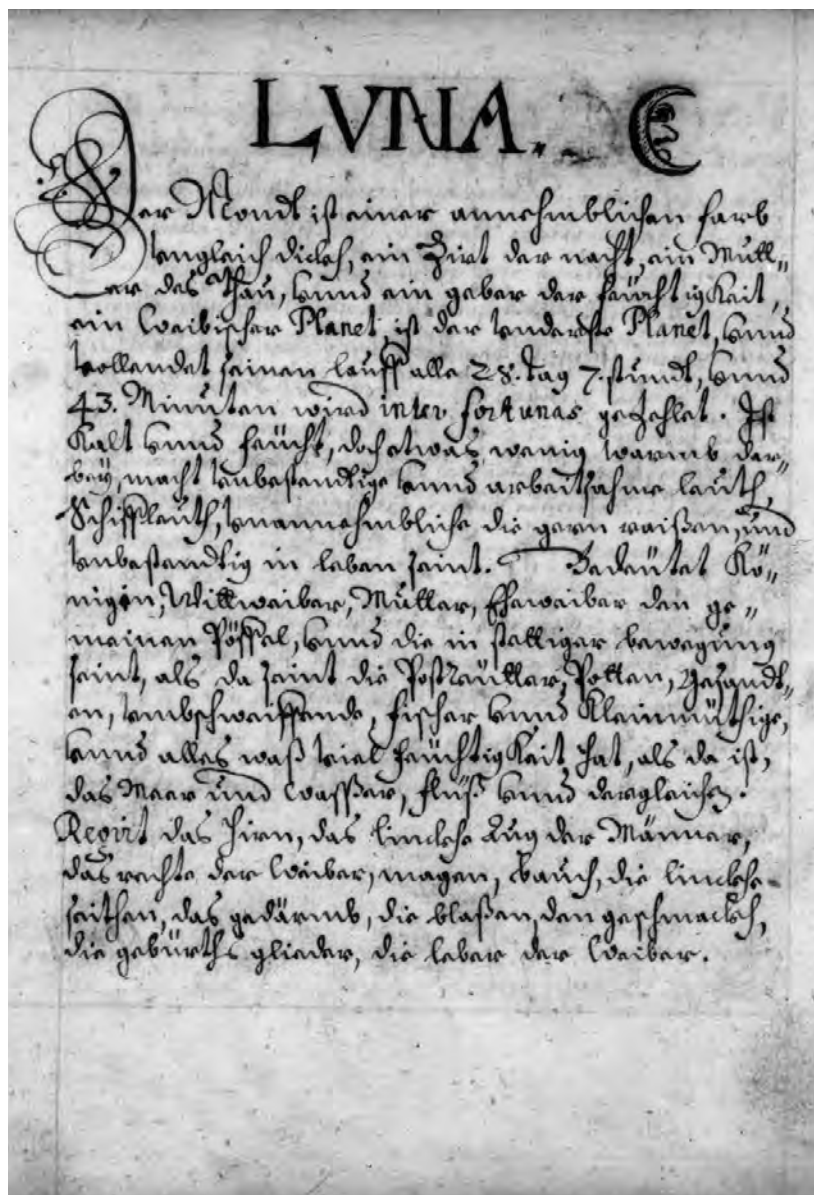 LVNA. ☾
Der Mondt ist einer annehmblichen farb
vngleich dickh, ein Zirt der nacht, ein Mutt„
er des Thau, vnnd ein geber der feüchtigkeit,
ein Weibischer Planet, ist der vnderste Planet, vnnd
vollendet seinen lauff alle 28. tag 7. stundt, vnnd
43. Minuten wird inter fortunas gezehlet. Ist
Kalt vnnd feücht, doch etwas wenig warmb dar„
bey, macht vnbestendige vnnd arbeithsahme leuth,
Schiffleuth, vnannehmbliche die gern raißen, und
vnbestandtig in leben seint. Bedeütet Kö„
nigin, Wittweiber, Mutter, Eheweiber den ge„
meinen Pöffel, vnnd die in stettiger bewegung
seint, als da seint die Postreütter, Potten, Gesandt„
en, vmbschweiffende, fischer vnnd Kleinmüthige,
vnnd alles waß viel feüchtigkeit hat, als da ist,
das Meer und Wasßer, flüß vnnd dergleichen.
Regirt das hirn, das linckhe Aug der Männer,
das rechte der Weiber, magen, bauch, die linckhe
seithen, das gedärmb, die blaßen, den geschmackh,
die gebürths glieder, die leber der Weiber.